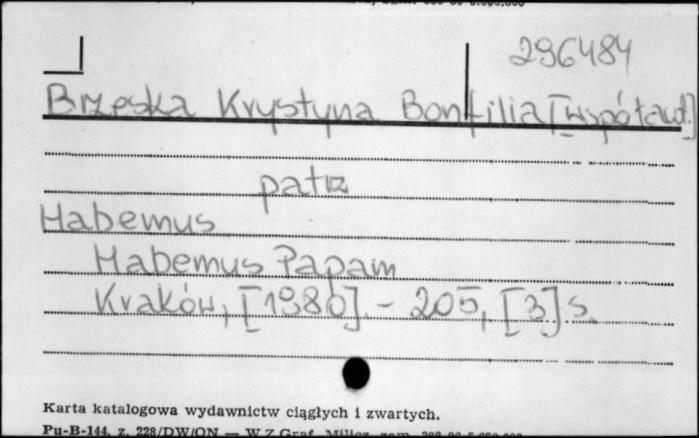 296484
Brzeska Krystyna Bonfilia [współaut.]
patrz
Habemus
Habemus Papam
Kraków, [1980]. - 205, [3] s.
Karta katalogowa wydawnictw ciągłych i zwartych.
Pu-B-144, z. 228/DW/ON — W.Z.Graf. Milicz, zam.